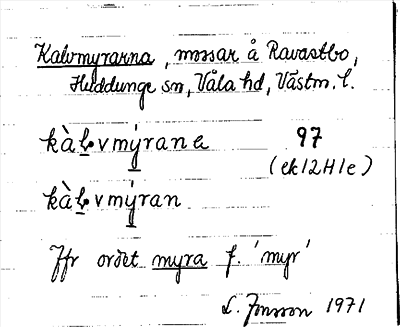 Kalvmyrarna, mossar å Ravastbo,
Huddunge sn, Våla hd, Västm. l.
kàḷvmýrana 97
(ek 12H1e)
kàḷvmýran
Jfr ordet myra f. 'myr'
L. Jonsson 1971